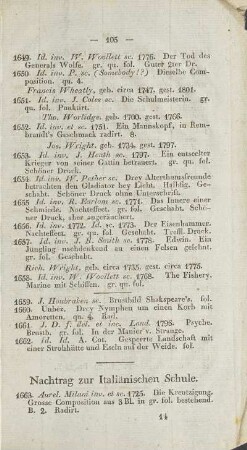 — 105 —
1649. Id. inv. W. Woollett sc. 1776. Der Tod des
Generals Wolfe. gr. qu. fol. Guter 2ter Dr.
1650. Id. inv. P. sc. (Somebody!?) Dieselbe Com-
position. qu. 4.
Francis Wheatly, geb. circa 1747. gest. 1801.
1651. Id. inv. J. Coles sc. Die Schulmeisterin. gr.
qu. fol. Punktirt.
Tho. Worlidge. geb. 1700. gest. 1766.
1652. Id. inv. et sc. 1751. Ein Mannskopf, in Rem-
brandt's Geschmack radirt. 8.
Jos. Wright. geb. 1734. gest. 1797.
1653. Id. inv. J. Heath sc. 1797. Ein entseelter
Krieger von seiner Gattin betrauert. gr. qu. fol.
Schöner Druck.
1654. Id. inv. W. Pether sc. Drey Alterthumsfreunde
betrachten den Gladiator bey Licht. Halbfig.
Geschabt. Schöner Druck ohne Unterschrift.
1655. Id. inv. R. Earlom sc. 1771. Das Innere einer
Schmiede. Nachteffect. gr. fol. Geschabt. Schö-
ner Druck, aber repariert.
1656. Id. inv. 1772. Id. sc. 1773. Der Eisenhammer.
Nachteffect. gr. qu. fol. Geschabt. Treffl. Druck.
1657. Id. inv. J. R. Smith sc. 1778. Edwin. Ein
Jüngling nachdenkend an einem Felsen gelehnt.
gr. fol. Geschabt.
Rich. Wright, geb. circa 1735. gest. circa 1775.
1658. Id. inv. W. Woollett sc. 1768. The Fishery.
Marine mit Schiffen. gr. qu. fol.
1659. J. Houbraken sc. Brustbild Shakspeare's. fol.
1660. Unbek. Drey Nymphen um einen Korb mit
Amoretten. qu. 4. Radirt.
1661. J. D. F. del. et inc. Land. 1798. Psyche.
Brustb. gr. fol. In der Manier v. Strange.
1662. Id. Id. A. Cat. Gesperrte Landschaft mit
einer Strohhütte und Eseln auf der Weide. fol.
Nachtrag zur Italiänischen Schule.
1663. Aurel. Milani inv. et sc. 1725. Die Kreutzigung.
Grosse Composition aus 3 Bl. in gr. fol. bestehend.
B. 2. Radirt.
14